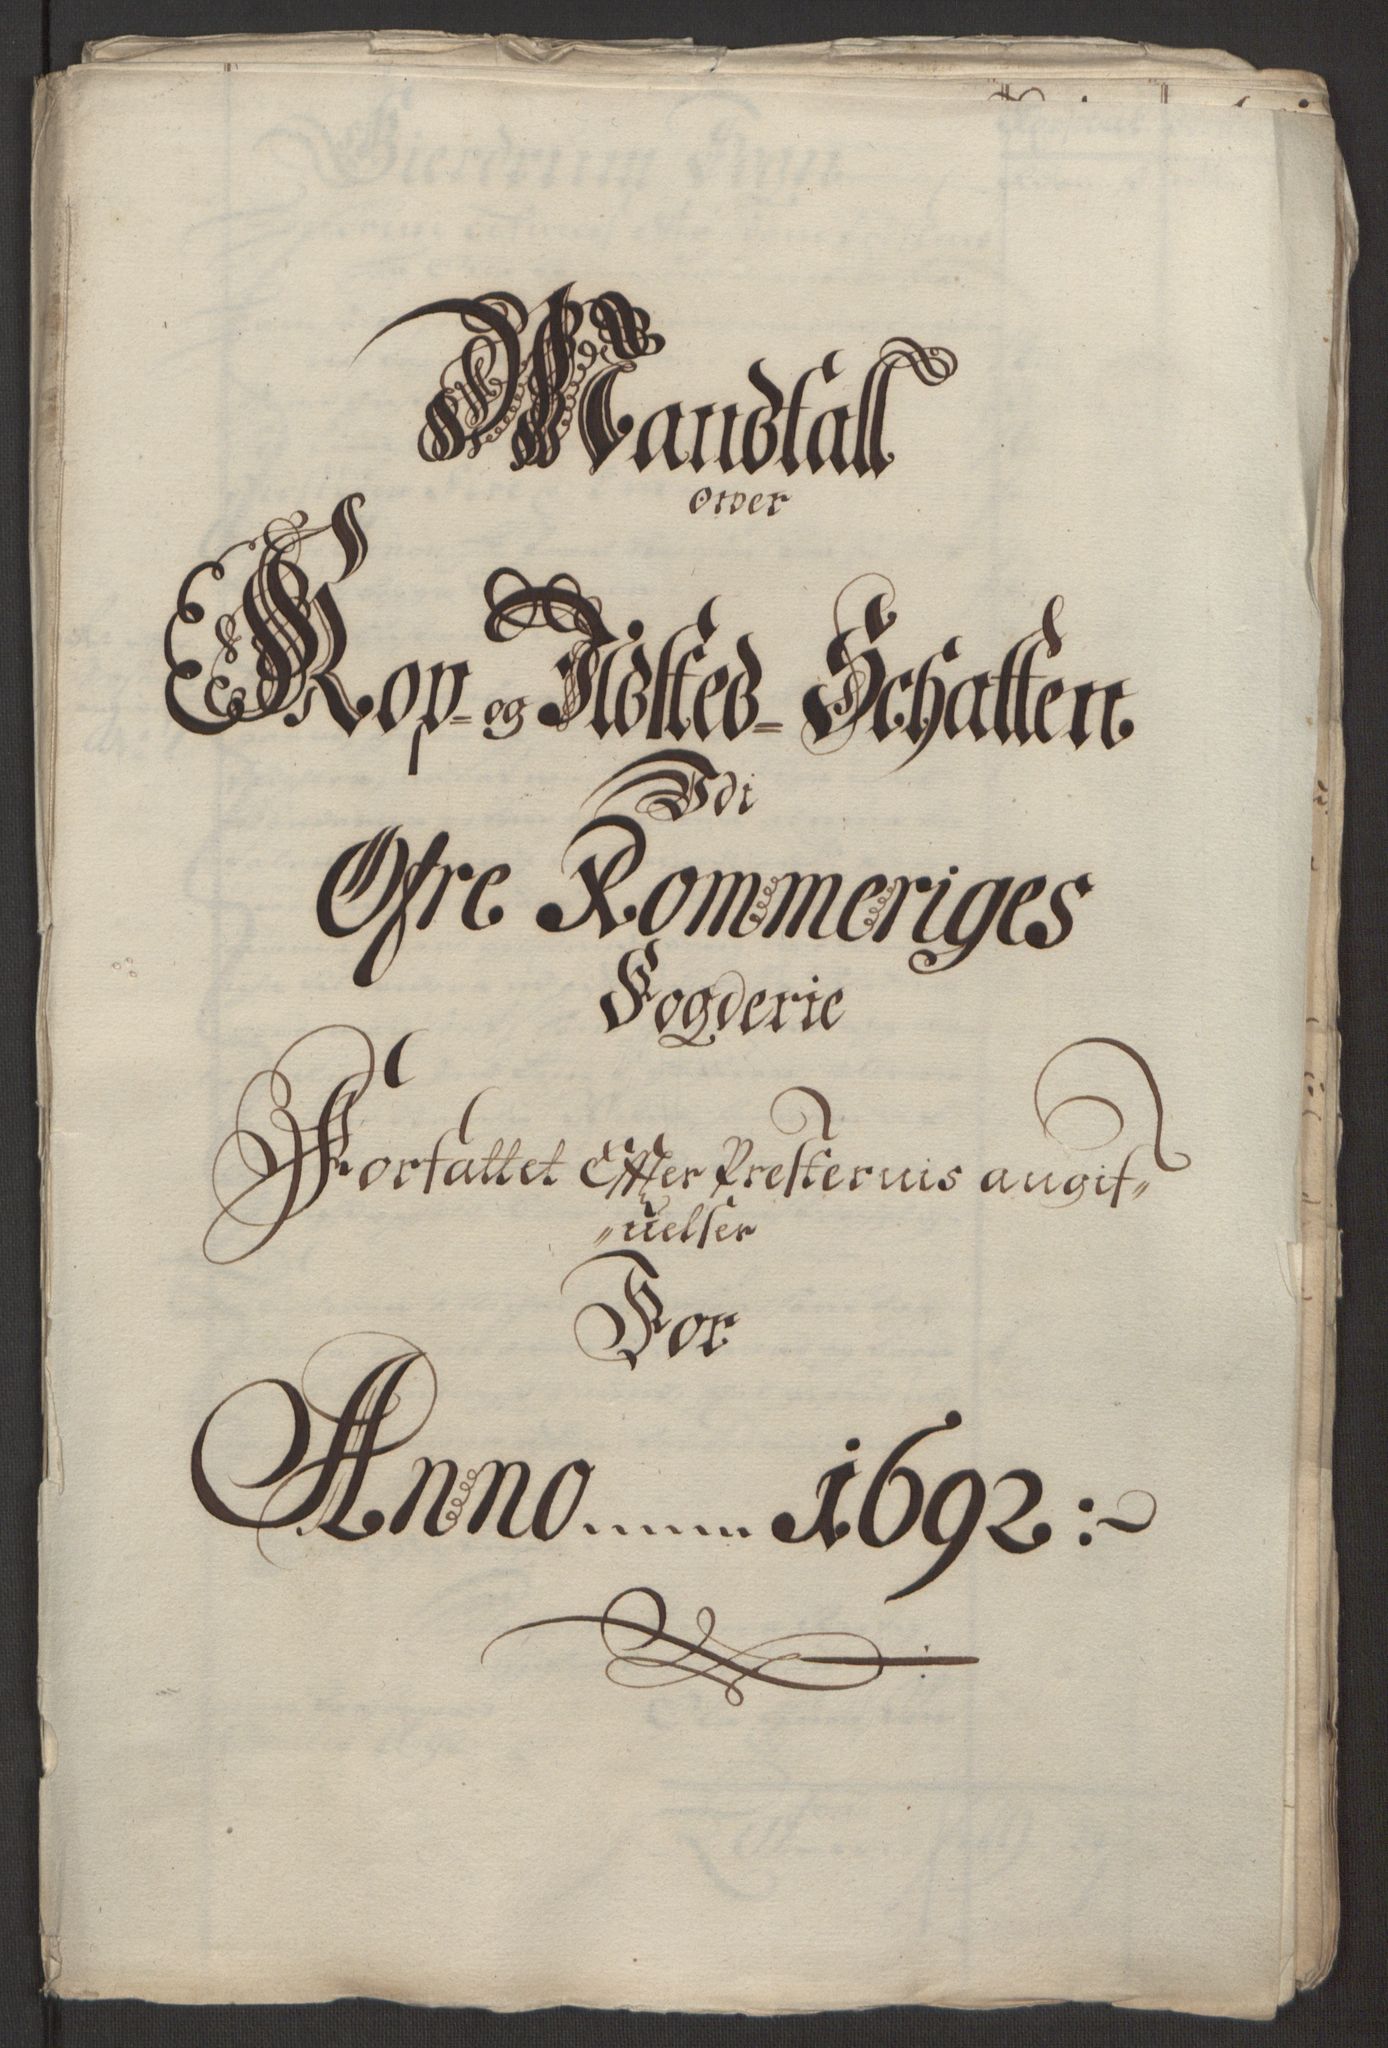 Mandtall
ower
Kop- og Ildsted- Schatten
Udi
Øfre Rommeriges
Fogderie
Forfattet Effter Presternis angif„
„uelser
For
Anno...... 1692:~